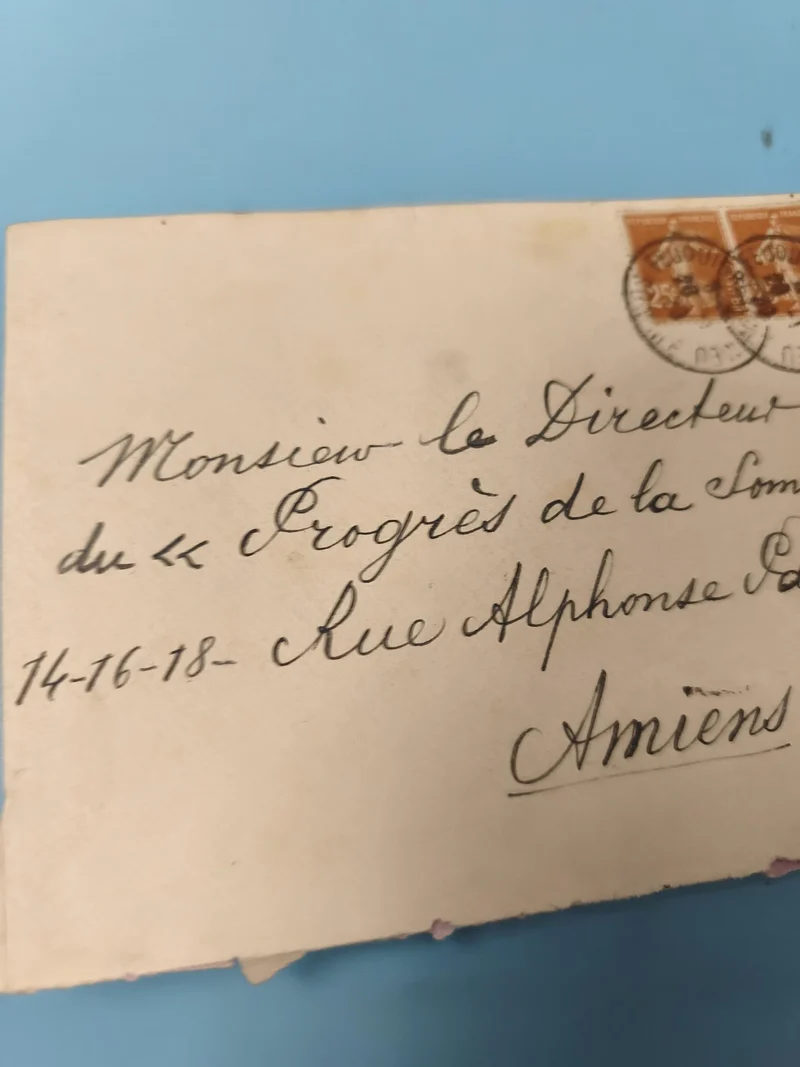 25
Monsieur le Directeur
du « Progrès de la Som
14-16-18- Rue Alphonse Pa
Amiens